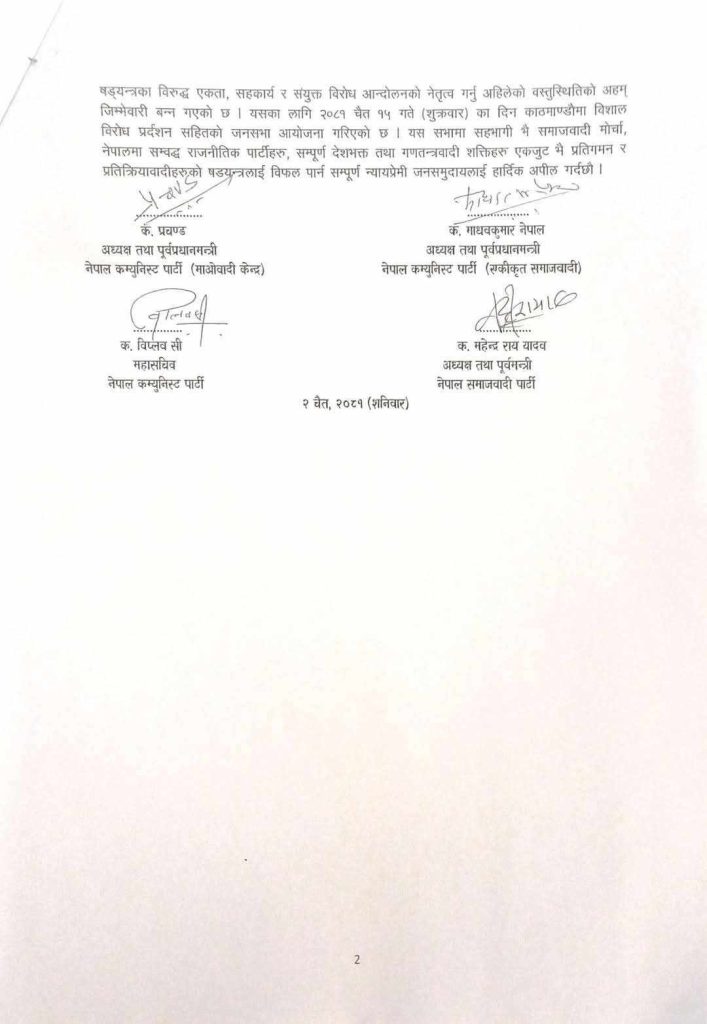 षड्यन्त्रका विरुद्ध एकता, सहकार्य र संयुक्त विरोध आन्दोलनको नेतृत्व गर्नु अहिलेको वस्तुस्थितिको अहम्
जिम्मेवारी बन्न गएको छ । यसका लागि २०८१ चैत १५ गते (शुक्रवार) का दिन काठमाण्डौमा विशाल
विरोध प्रर्दशन सहितको जनसभा आयोजना गरिएको छ । यस सभामा सहभागी भै समाजवादी मोर्चा,
नेपालमा सम्वद्ध राजनीतिक पार्टीहरु, सम्पूर्ण देशभक्त तथा गणतन्त्रवादी शक्तिहरु एकजुट भै प्रतिगमन र
प्रतिक्रियावादीहरुको षडयन्त्रलाई विफल पार्न सम्पूर्ण न्यायप्रेमी जनसमुदायलाई हार्दिक अपील गर्दछौ ।
प्रचण्ड
क. प्रचण्ड
अध्यक्ष तथा पूर्वप्रधानमन्त्री
नेपाल कम्युनिस्ट पार्टी (माओवादी केन्द्र)
क. माधवकुमार नेपाल
अध्यक्ष तथा पूर्वप्रधानमन्त्री
नेपाल कम्युनिस्ट पार्टी (एकीकृत समाजवादी)
क. विप्लव सी
महासचिव
नेपाल कम्युनिस्ट पार्टी
क. महेन्द्र राय यादव
अध्यक्ष तथा पूर्वमन्त्री
नेपाल समाजवादी पार्टी
२ चैत, २०८१ (शनिवार)
2